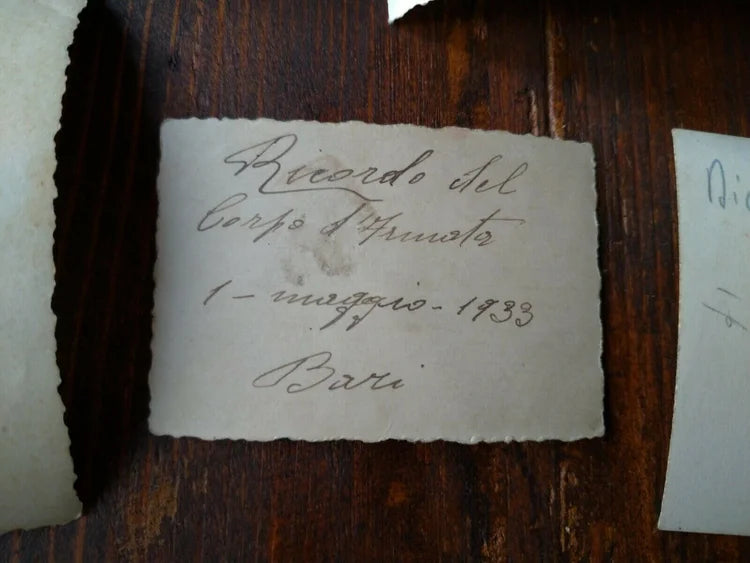 Ricordo del
Corpo d'Armata
1 - maggio - 1933
Bari